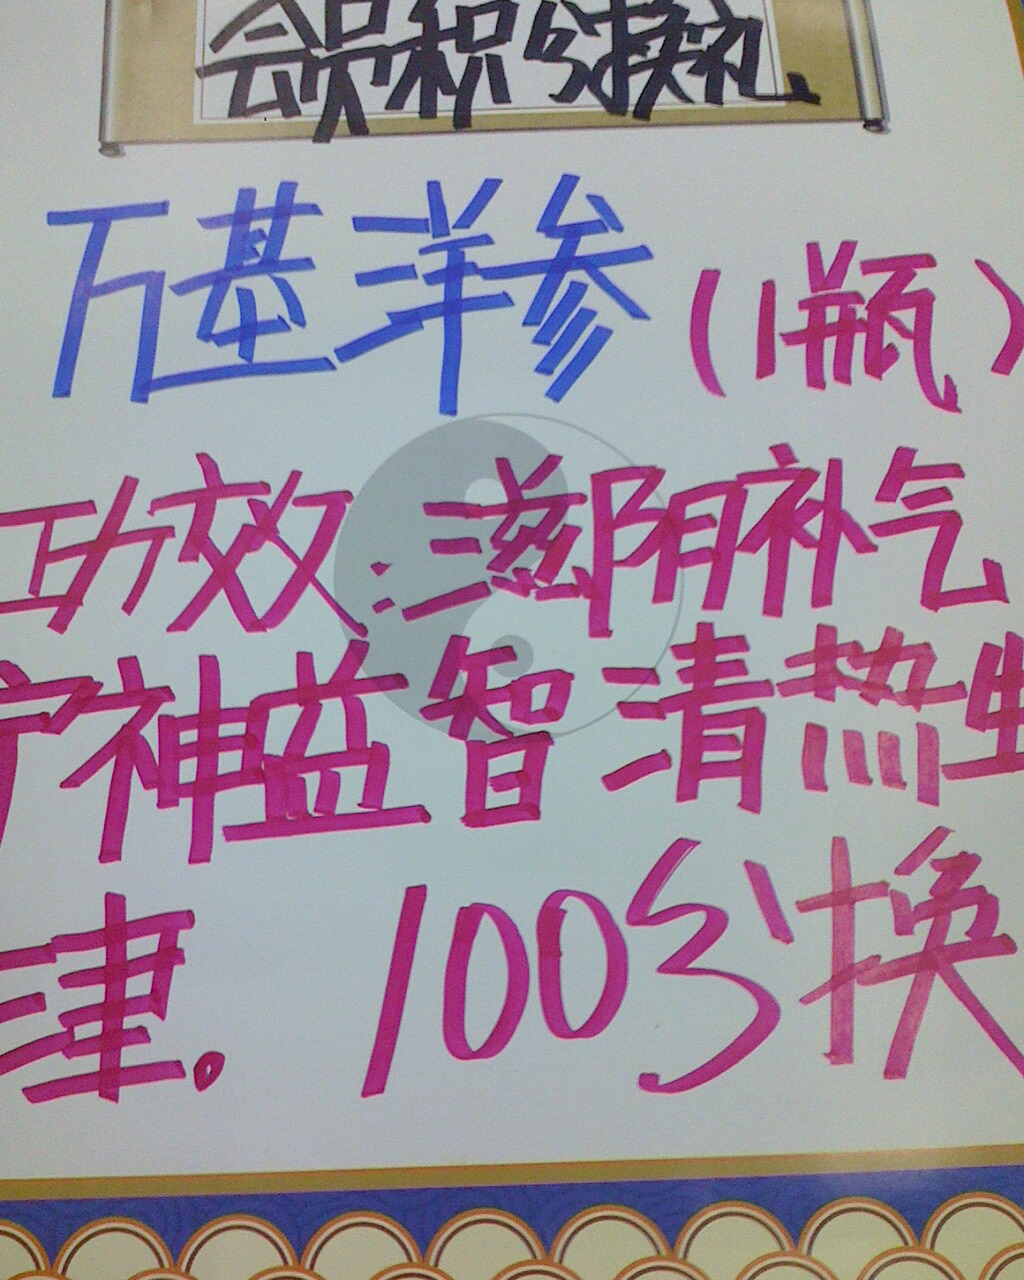 会员积分换礼
万基洋参(1瓶)
功效:滋阴补气
宁神益智清热生
津。100分换